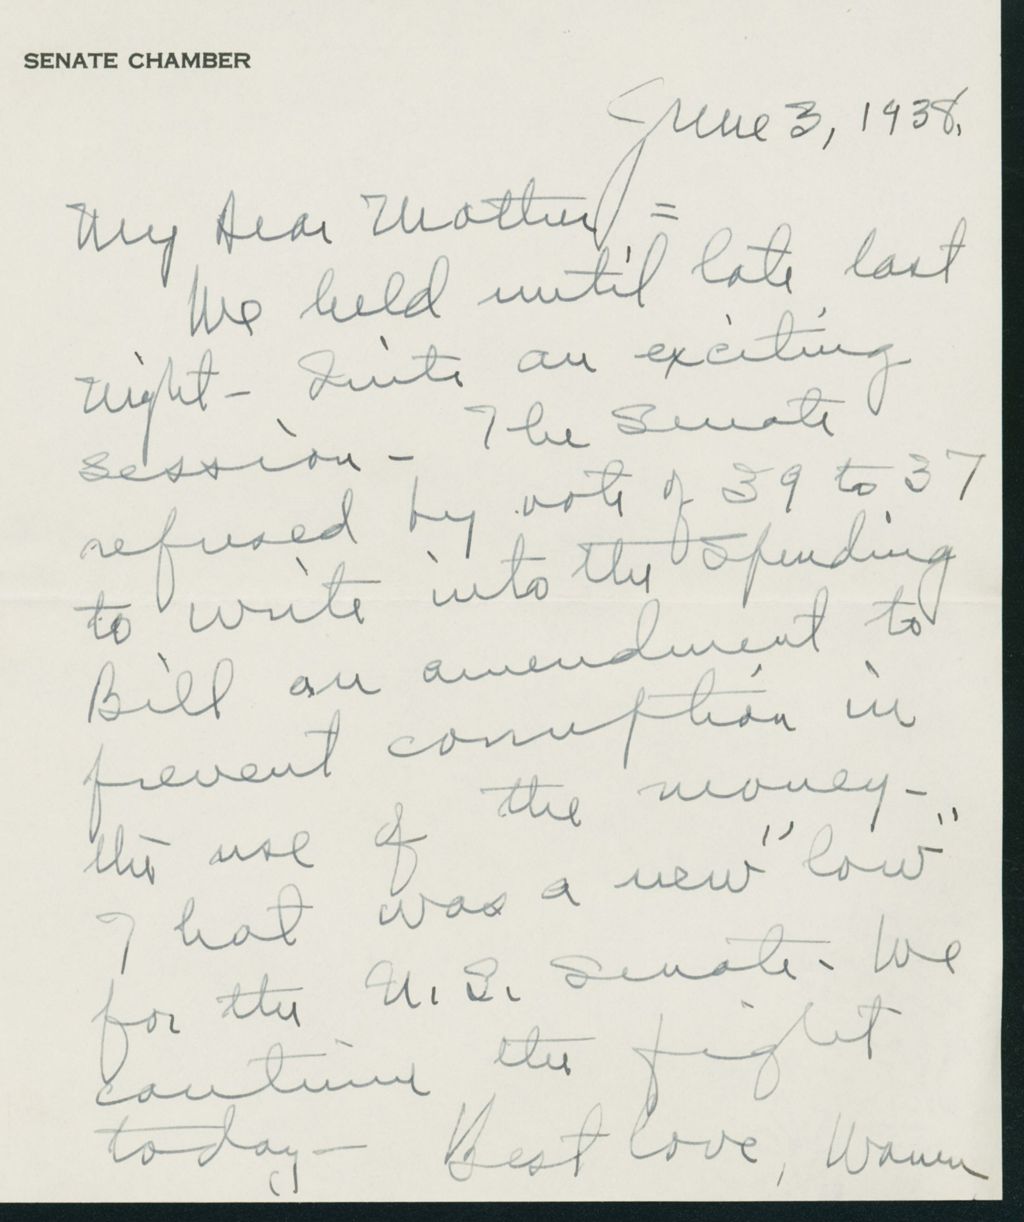 SENATE CHAMBER
June 3, 1938.
My dear Mother =
We held until late last
night - Quite an exciting
session - The Senate
refused by vote of 39 to 37
to write into the Spending
Bill an amendment to
prevent corruption in
the use of the money -
That was a new "low"
for the U.S. Senate. We
continue the fight
today - Best love, Warren